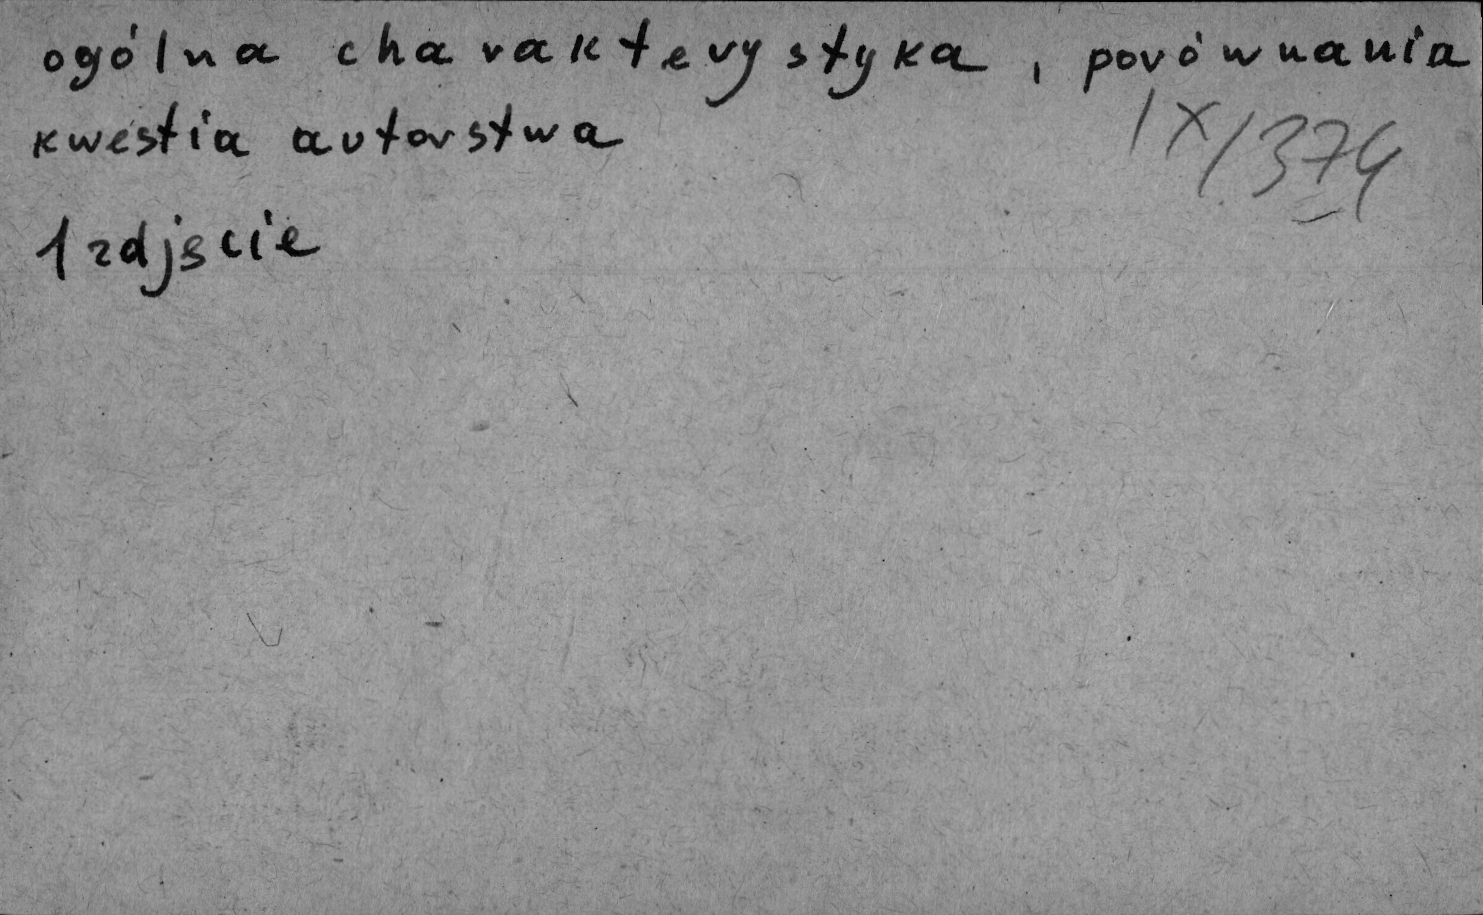 ogólna charakterystyka, porównania
kwestia autorstwa
IX/374
1 zdjęcie